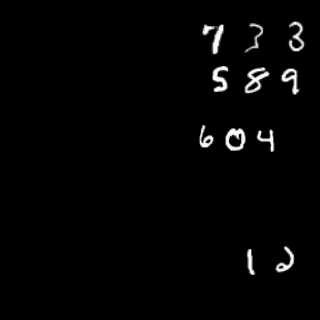 7 3 3
5 8 9
6 0 4
1 2